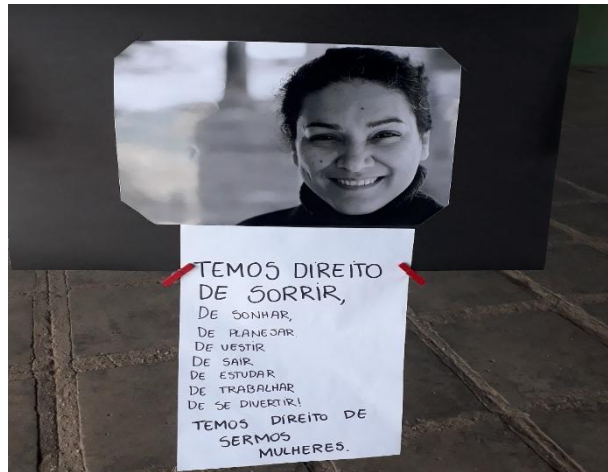 TEMOS DIREITO
DE SORRIR,
DE SONHAR,
DE PLANEJAR
DE VESTIR
DE SAIR
DE ESTUDAR
DE TRABALHAR
DE SE DIVERTIR!
TEMOS DIREITO DE
SERMOS
MULHERES.